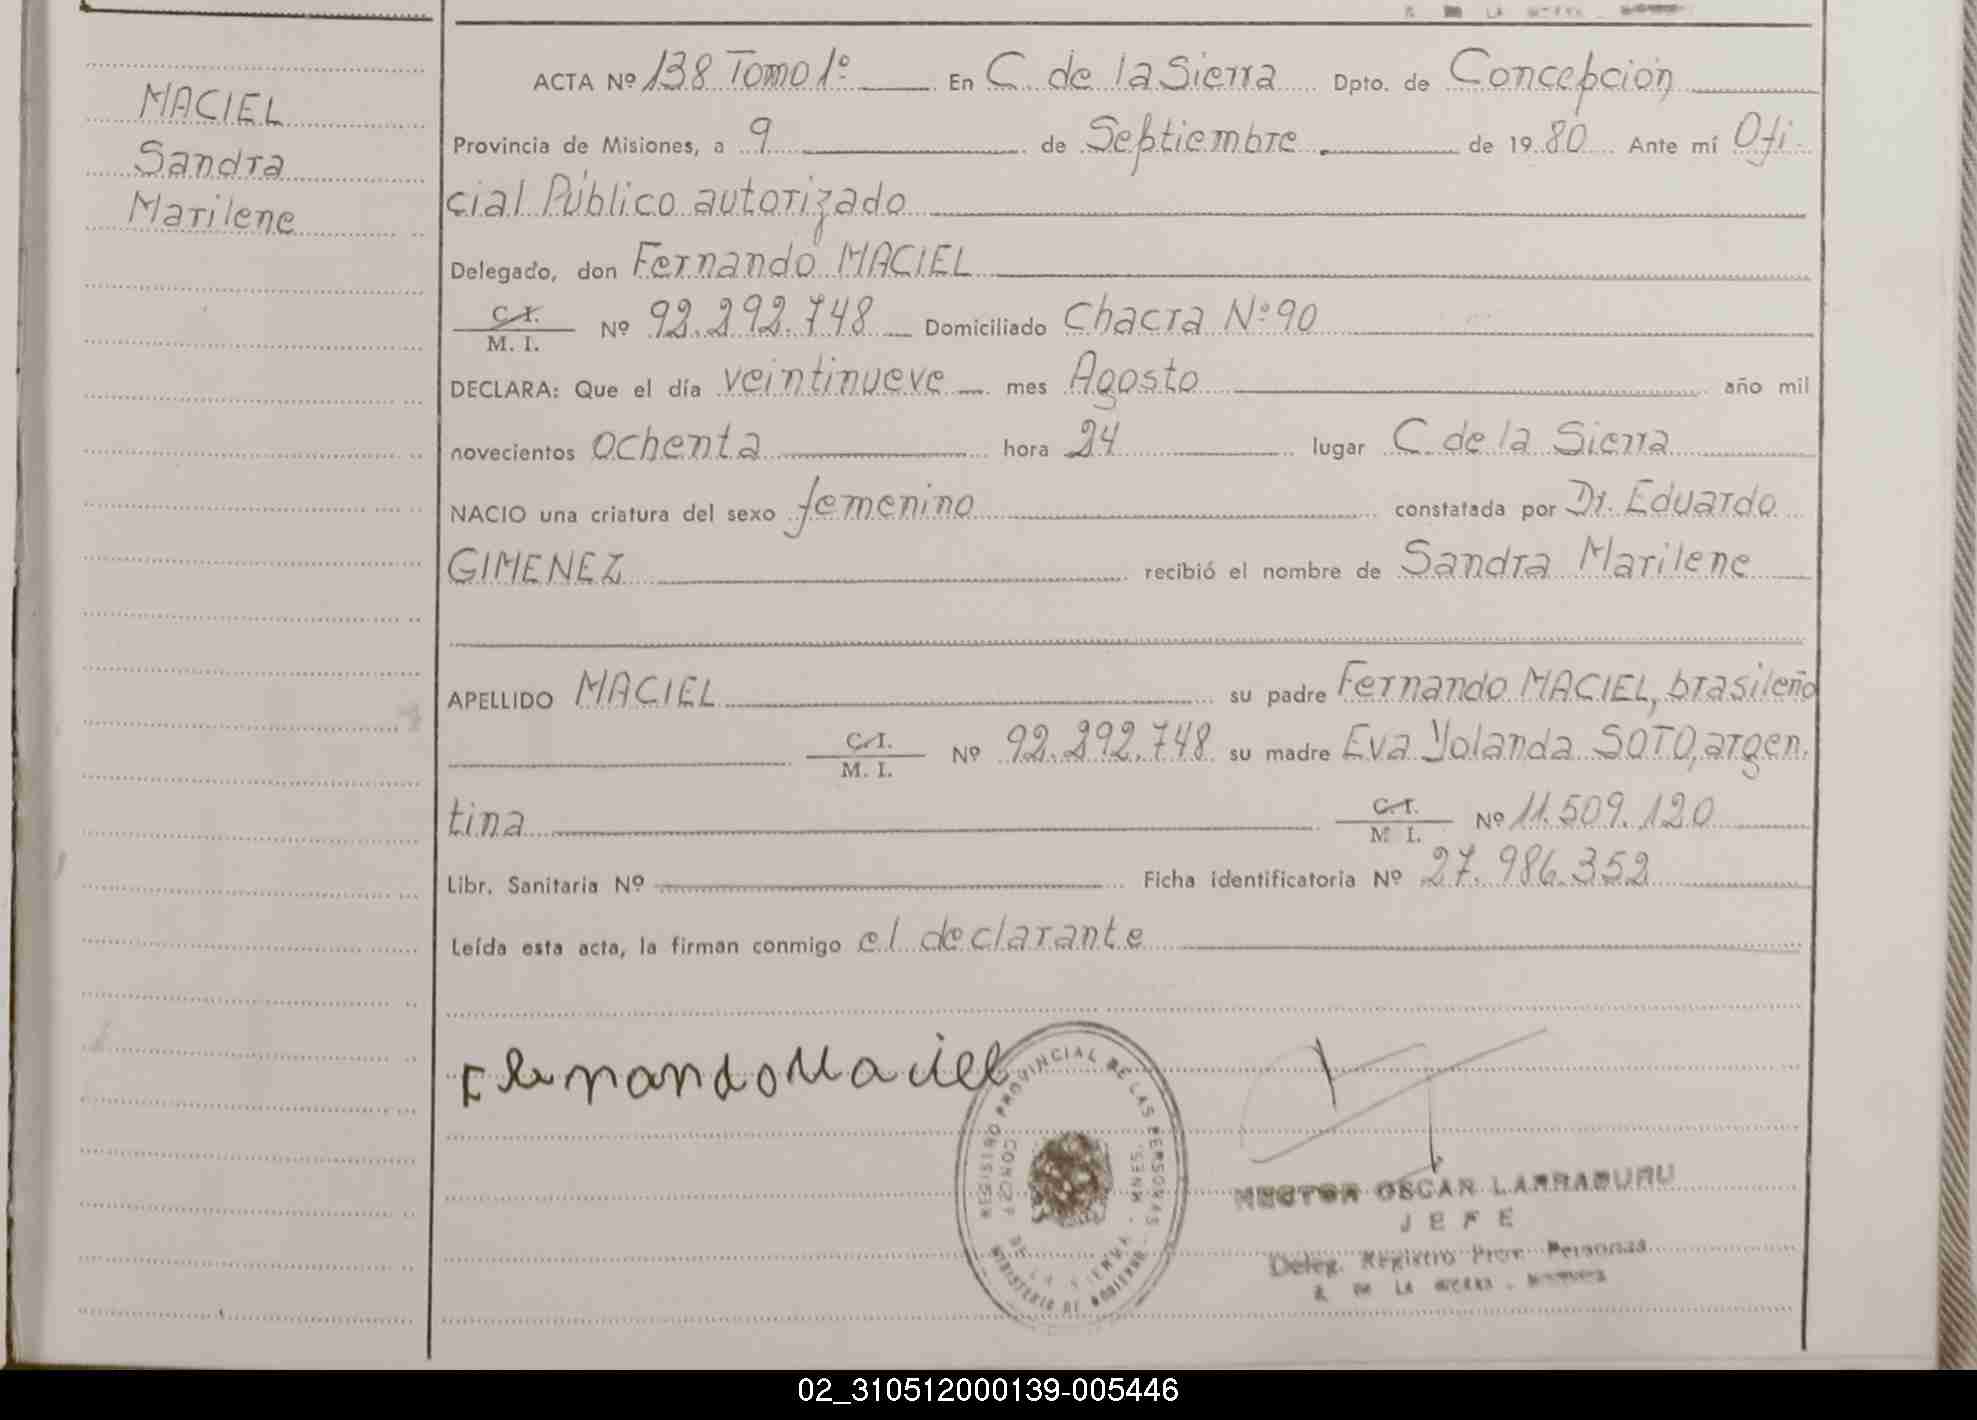 MACIEL
Sandra
Marilene
ACTA Nº 138 Tomo 1º En C. de la Sierra Dpto. de Concepción
Provincia de Misiones, a 9 de Septiembre de 1980 Ante mí Ofi-
cial Público autorizado
Delegado, don Fernando MACIEL
C.I.
M. I. Nº 92.292.748 Domiciliado Chacra Nº 90
DECLARA: Que el día veintinueve mes Agosto año mil
novecientos ochenta hora 24 lugar C. de la Sierra
NACIO una criatura del sexo femenino constatada por Dr. Eduardo
GIMENEZ recibió el nombre de Sandra Marilene
APELLIDO MACIEL su padre Fernando MACIEL, brasileño
C.I.
M. I. Nº 92.292.748 su madre Eva Yolanda SOTO, argen-
tina C.I.
M I. Nº 11.509.120
Libr. Sanitaria Nº Ficha identificatoria Nº 27.986.352
Leída esta acta, la firman conmigo el declarante
Fernando Maciel
REGISTRO PROVINCIAL DE LAS PERSONAS
CONCEP. DE LA SIERRA - MNES.
MINISTERIO DE GOBIERNO
HECTOR OSCAR LARRABURU
JEFE
Deleg. Registro Prov. Personas
DE LA
02_310512000139-005446